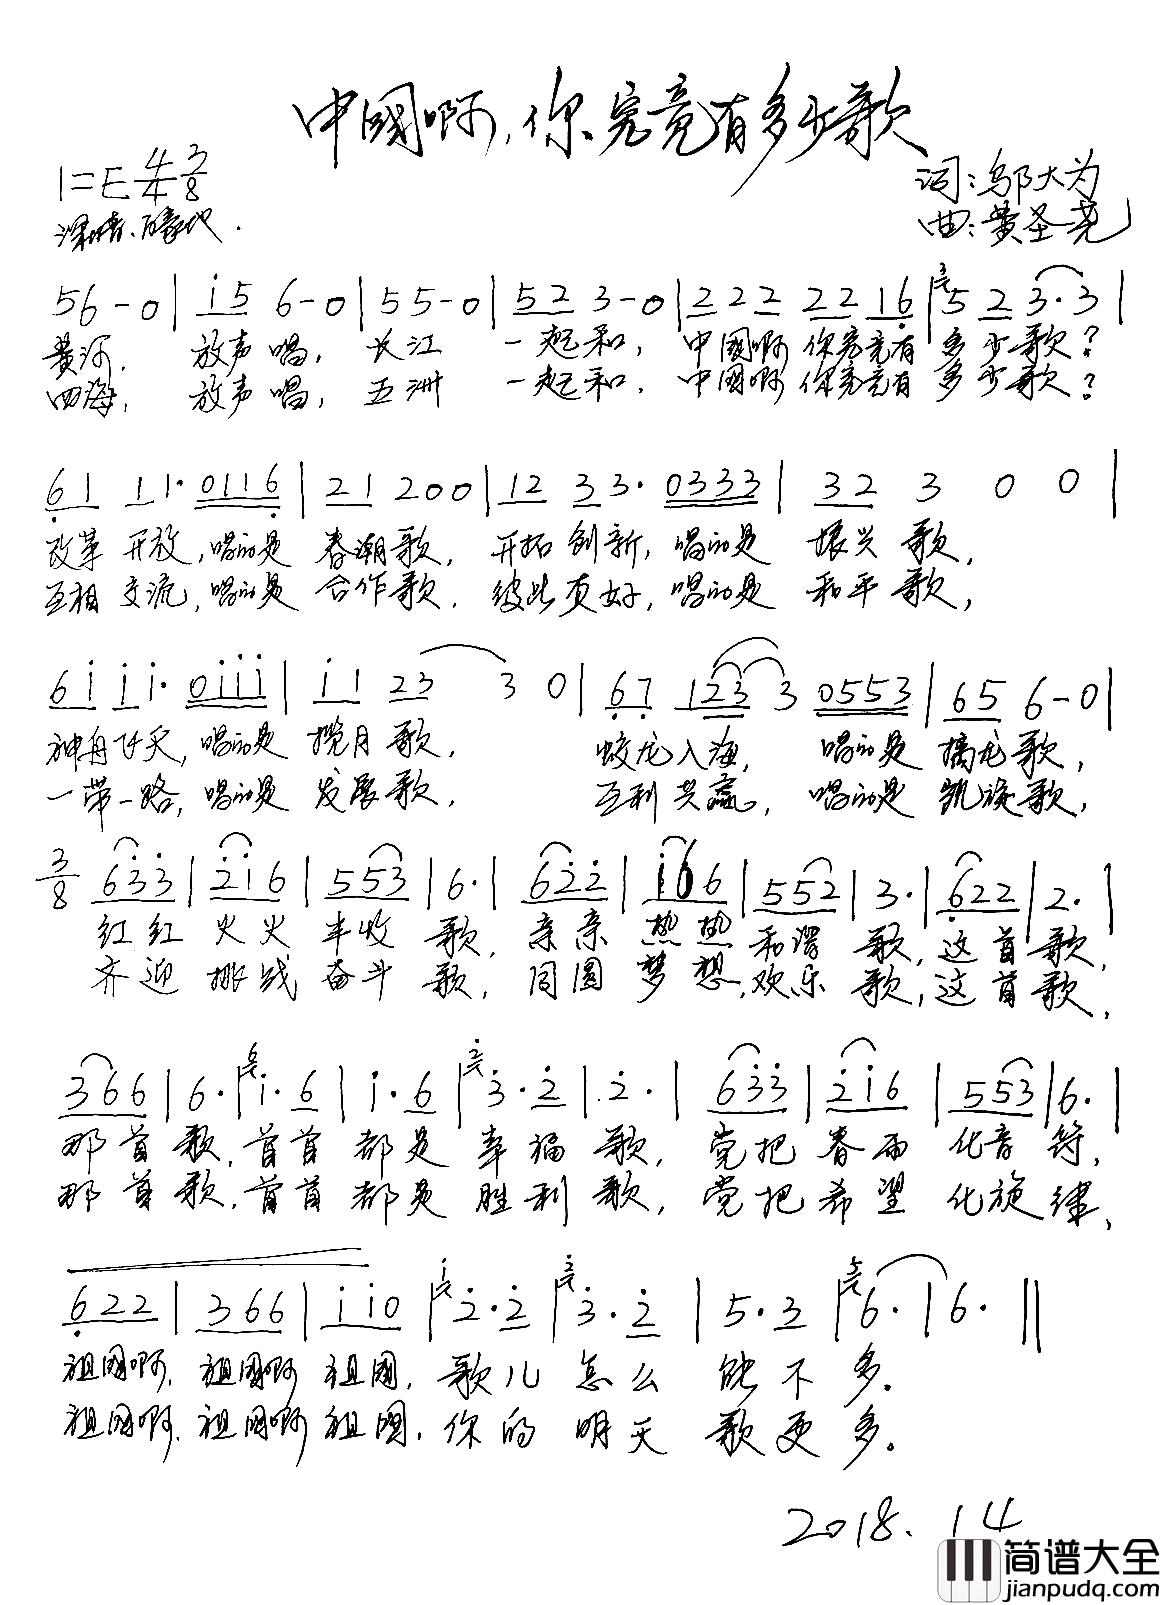 中國啊,你究竟有多少歌
1=E 4/4 3/8
词:邬大为
深情、自豪地.
曲:黄圣尧
56-0| i5 6-0|55-0|52 3-0|222 2216|3 5 2 3·3|
黄河, 放声唱, 长江 一起和, 中國啊 你究竟有 多少歌?
四海, 放声唱, 五洲 一起和, 中國啊 你究竟有 多少歌?
61 11· 0116|21 200|12 33· 0333| 32 3 0 0|
改革 开放,唱的是 春潮歌, 开拓创新, 唱的是 振兴歌,
互相交流,唱的是 合作歌, 彼此友好,唱的是 和平歌,
6i ii· 0iii| i1 23 3 0| 67 123 3 0553|65 6-0|
神舟飞天,唱的是 揽月歌, 蛟龙入海, 唱的是 擒龙歌,
一带一路,唱的是 发展歌, 互利共赢, 唱的是 凯旋歌,
3/8 633|2i6|553|6·|622|i66|552|3·|622|2·|
红红火火丰收歌,亲亲热热和谐歌,这首歌,
齐迎挑战奋斗歌,同圆梦想,欢乐歌,这首歌,
366|6·|6 i·6|i·6|2 3·2|2·|633|2i6|553|6·|
那首歌,首首都是幸福歌,党把春雨化音符,
那首歌,首首都是胜利歌,党把希望化旋律,
622|366|ii0|i 2·2|2 3·2|5·3|5 6·|6·‖
祖国啊,祖国啊祖国,歌儿怎么能不多.
祖国啊,祖国啊祖国,你的明天歌更多.
2018.14
简谱大全
jianpudq.com